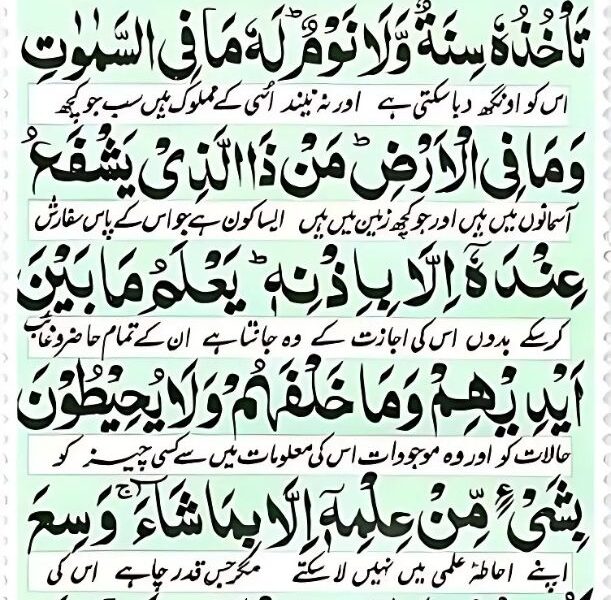 تَاْخُذُهٗ سِنَةٌ وَّلَا نَوْمٌ ؕ لَهٗ مَا فِى السَّمٰوٰتِ
اس کو اونگھ دبا سکتی ہے اور نہ نیند اسی کے مملوک ہیں سب جو کچھ
وَمَا فِى الْاَرْضِ ؕ مَنْ ذَا الَّذِىْ يَشْفَعُ
آسمانوں میں ہیں اور جو کچھ زمین میں ہیں ایسا کون ہے جو اس کے پاس سفارش
عِنْدَهٗۤ اِلَّا بِاِذْنِهٖ ؕ يَعْلَمُ مَا بَيْنَ
کر سکے بدوں اس کی اجازت کے وہ جانتا ہے ان کے تمام حاضر و غائب
اَيْدِيْهِمْ وَمَا خَلْفَهُمْ وَلَا يُحِيْطُوْنَ
حالات کو اور وہ موجودات اس کی معلومات میں سے کسی چیز کو
بِشَىْءٍ مِّنْ عِلْمِهٖۤ اِلَّا بِمَا شَآءَ ۚ وَسِعَ
اپنے احاطۂ علمی میں نہیں لا سکتے مگر جس قدر چاہے اس کی